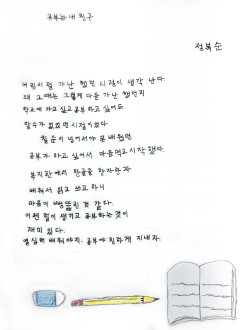 공부는 내 친구
정복순
어린시절 가난 했던 시절이 생각 난다.
왜 그때는 그렇게 다들 가난 했던지
학교에 가고 싶고 공부하고 싶어도
할수가 없었던 시절이었다.
칠순이 넘어서야 못 배웠던
공부가 하고 싶어서 다음먹고 시작 했다.
복지관에서 한글을 한자한자
배워서 읽고 쓰고 하니
마음이 뻥 뚫린 것 같다.
이젠 힘이 생기고 공부하는것이
재미 있다.
열심히 배워야지. 공부야 친하게 지내자.